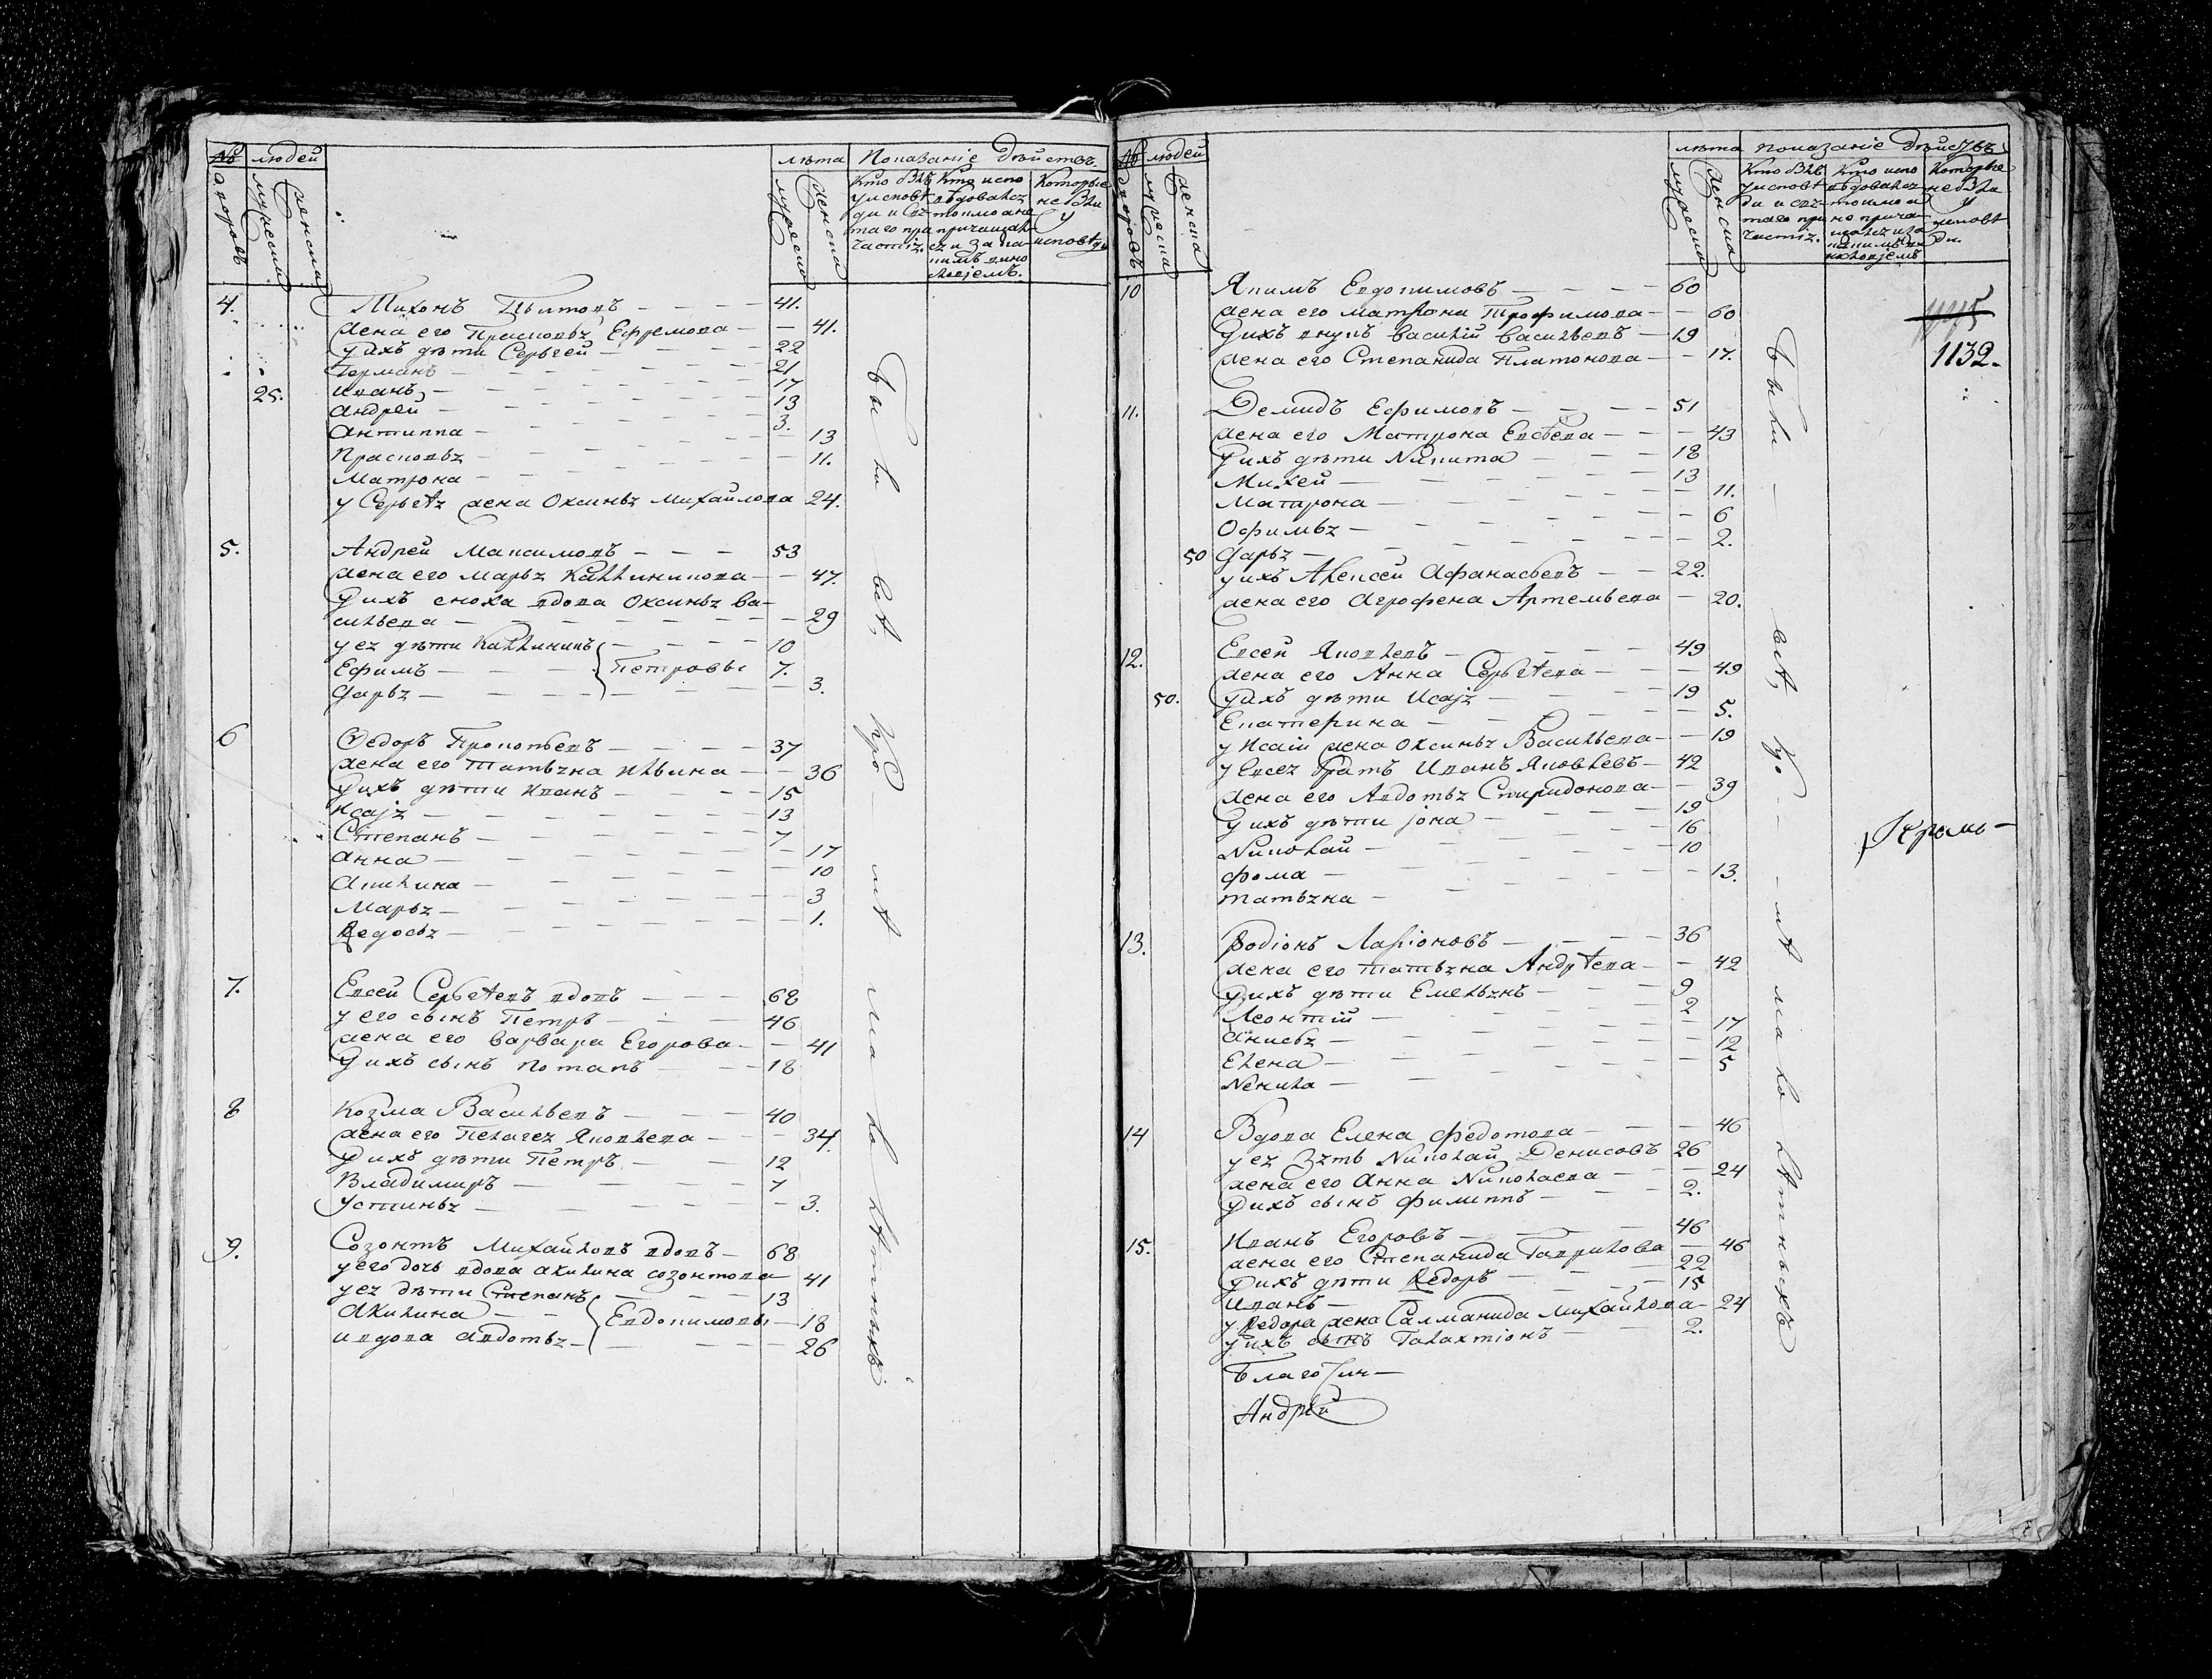 № дворовъ
людей
мужеска
женска
лѣта
мужеска
женска
Показаніе дѣйствъ.
Кто былъ
у исповѣ
ди и свя
таго при
частія.
Кто испо
вѣдовался
токмо а не
причащал
ся и за ка
кимъ вино
словіемъ.
Которые
не были
у
исповѣди
4.
Тихонъ Титовъ — 41.
жена его Прасковья Ефремова — 41.
у ихъ дѣти Сергѣй — 22
Германъ — 21
25. Иванъ — 17
Андрей — 13
Антиппа — 3.
Прасковья — 13
Матрона — 11.
у Сергѣя жена Оксинья Михайлова 24.
5. Андрей Максимовъ — 53
жена его Марья Каллиникова — 47.
У ихъ сноха вдова Оксинья Ва-
сильева — 29
у ея дѣти Каллиникъ — 10
Ефимъ — Петровы 7.
Дарья — 3.
6 Ѳедоръ Прокопьевъ — 37
жена его Татьяна Ильина — 36
У ихъ дѣти Иванъ — 15
Исаія — 13
Степанъ — 7
Анна — 17
Акилина — 10
Марья — 3
Ѳедосья — 1.
7. Евсей Сергѣевъ вдовъ — 68
у его сынъ Петръ — 46
жена его Варвара Егорова — 41
У ихъ сынъ Потапъ — 18
8 Козма Васильевъ — 40
жена его Пелагея Яковлева — 34.
У ихъ дѣти Петръ — 12
Владимиръ — 7
Устинья — 3.
9. Созонтъ Михайловъ вдовъ — 68
у его дочь вдова Акилина Созонтова 41
у ея дѣти Степанъ — 13
Акилина — Евдокимовы — 18
и вдова Авдотья — 26
были всѣ, кро-мѣ малолѣтныхъ
№ дворовъ
людей
мужеска
женска
лѣта
мужеска
женска
показаніе дѣйствъ
Кто былъ
у исповѣ
ди и свя
таго при
частія.
Кто испо
вѣдовался
токмо и
не прича
щался
Которые
не были
у
исповѣ
ди.
10 Якимъ Евдокимовъ — 60
жена его Матрона Трофимова — 60
У ихъ внукъ Василій Васильевъ — 19
жена его Степанида Платонова — 17.
1132.
11. Демидъ Ефимовъ — 51
жена его Матрона Евсѣева — 43
У ихъ дѣти Никита — 18
Михей — 13
Матрона — 11.
Офимья — 6
50 Дарья — 2.
у ихъ Алексей Афанасьевъ — 22.
жена его Агрофена Артемьева — 20.
12. Евсей Яковлевъ — 49
жена его Анна Сергѣева — 49
50. У ихъ дѣти Исаія — 19
Екатерина — 5.
у Исаіи жена Оксинья Васильева — 19
у Евсея братъ Иванъ Яковлевъ — 42
жена его Авдотья Спиридонова — 39
У ихъ дѣти Іона — 19
Николай — 16
Фома — 10
Татьяна — 13.
13. Родіонъ Ларіоновъ — 36
жена его Татьяна Андрѣева — 42
У ихъ дѣти Емельянъ — 9
Леонтій — 2
Анисья — 17
Елена — 12
Ненила — 5
14 Вдова Елена Федотова — 46
у ея зять Николай Денисовъ 26
жена его Анна Николаева — 24
У ихъ сынъ Филиппъ — 2.
15. Иванъ Егоровъ — 46
жена его Степанида Гаврилова — 46
У ихъ дѣти Ѳедоръ — 22
Иванъ — 15
у Ѳедора жена Салманида Михайлова — 24
у ихъ сынъ Галахтіонъ — 2.
были — всѣ, кро-мѣ малолѣтныхъ
Благочин—
Андрей